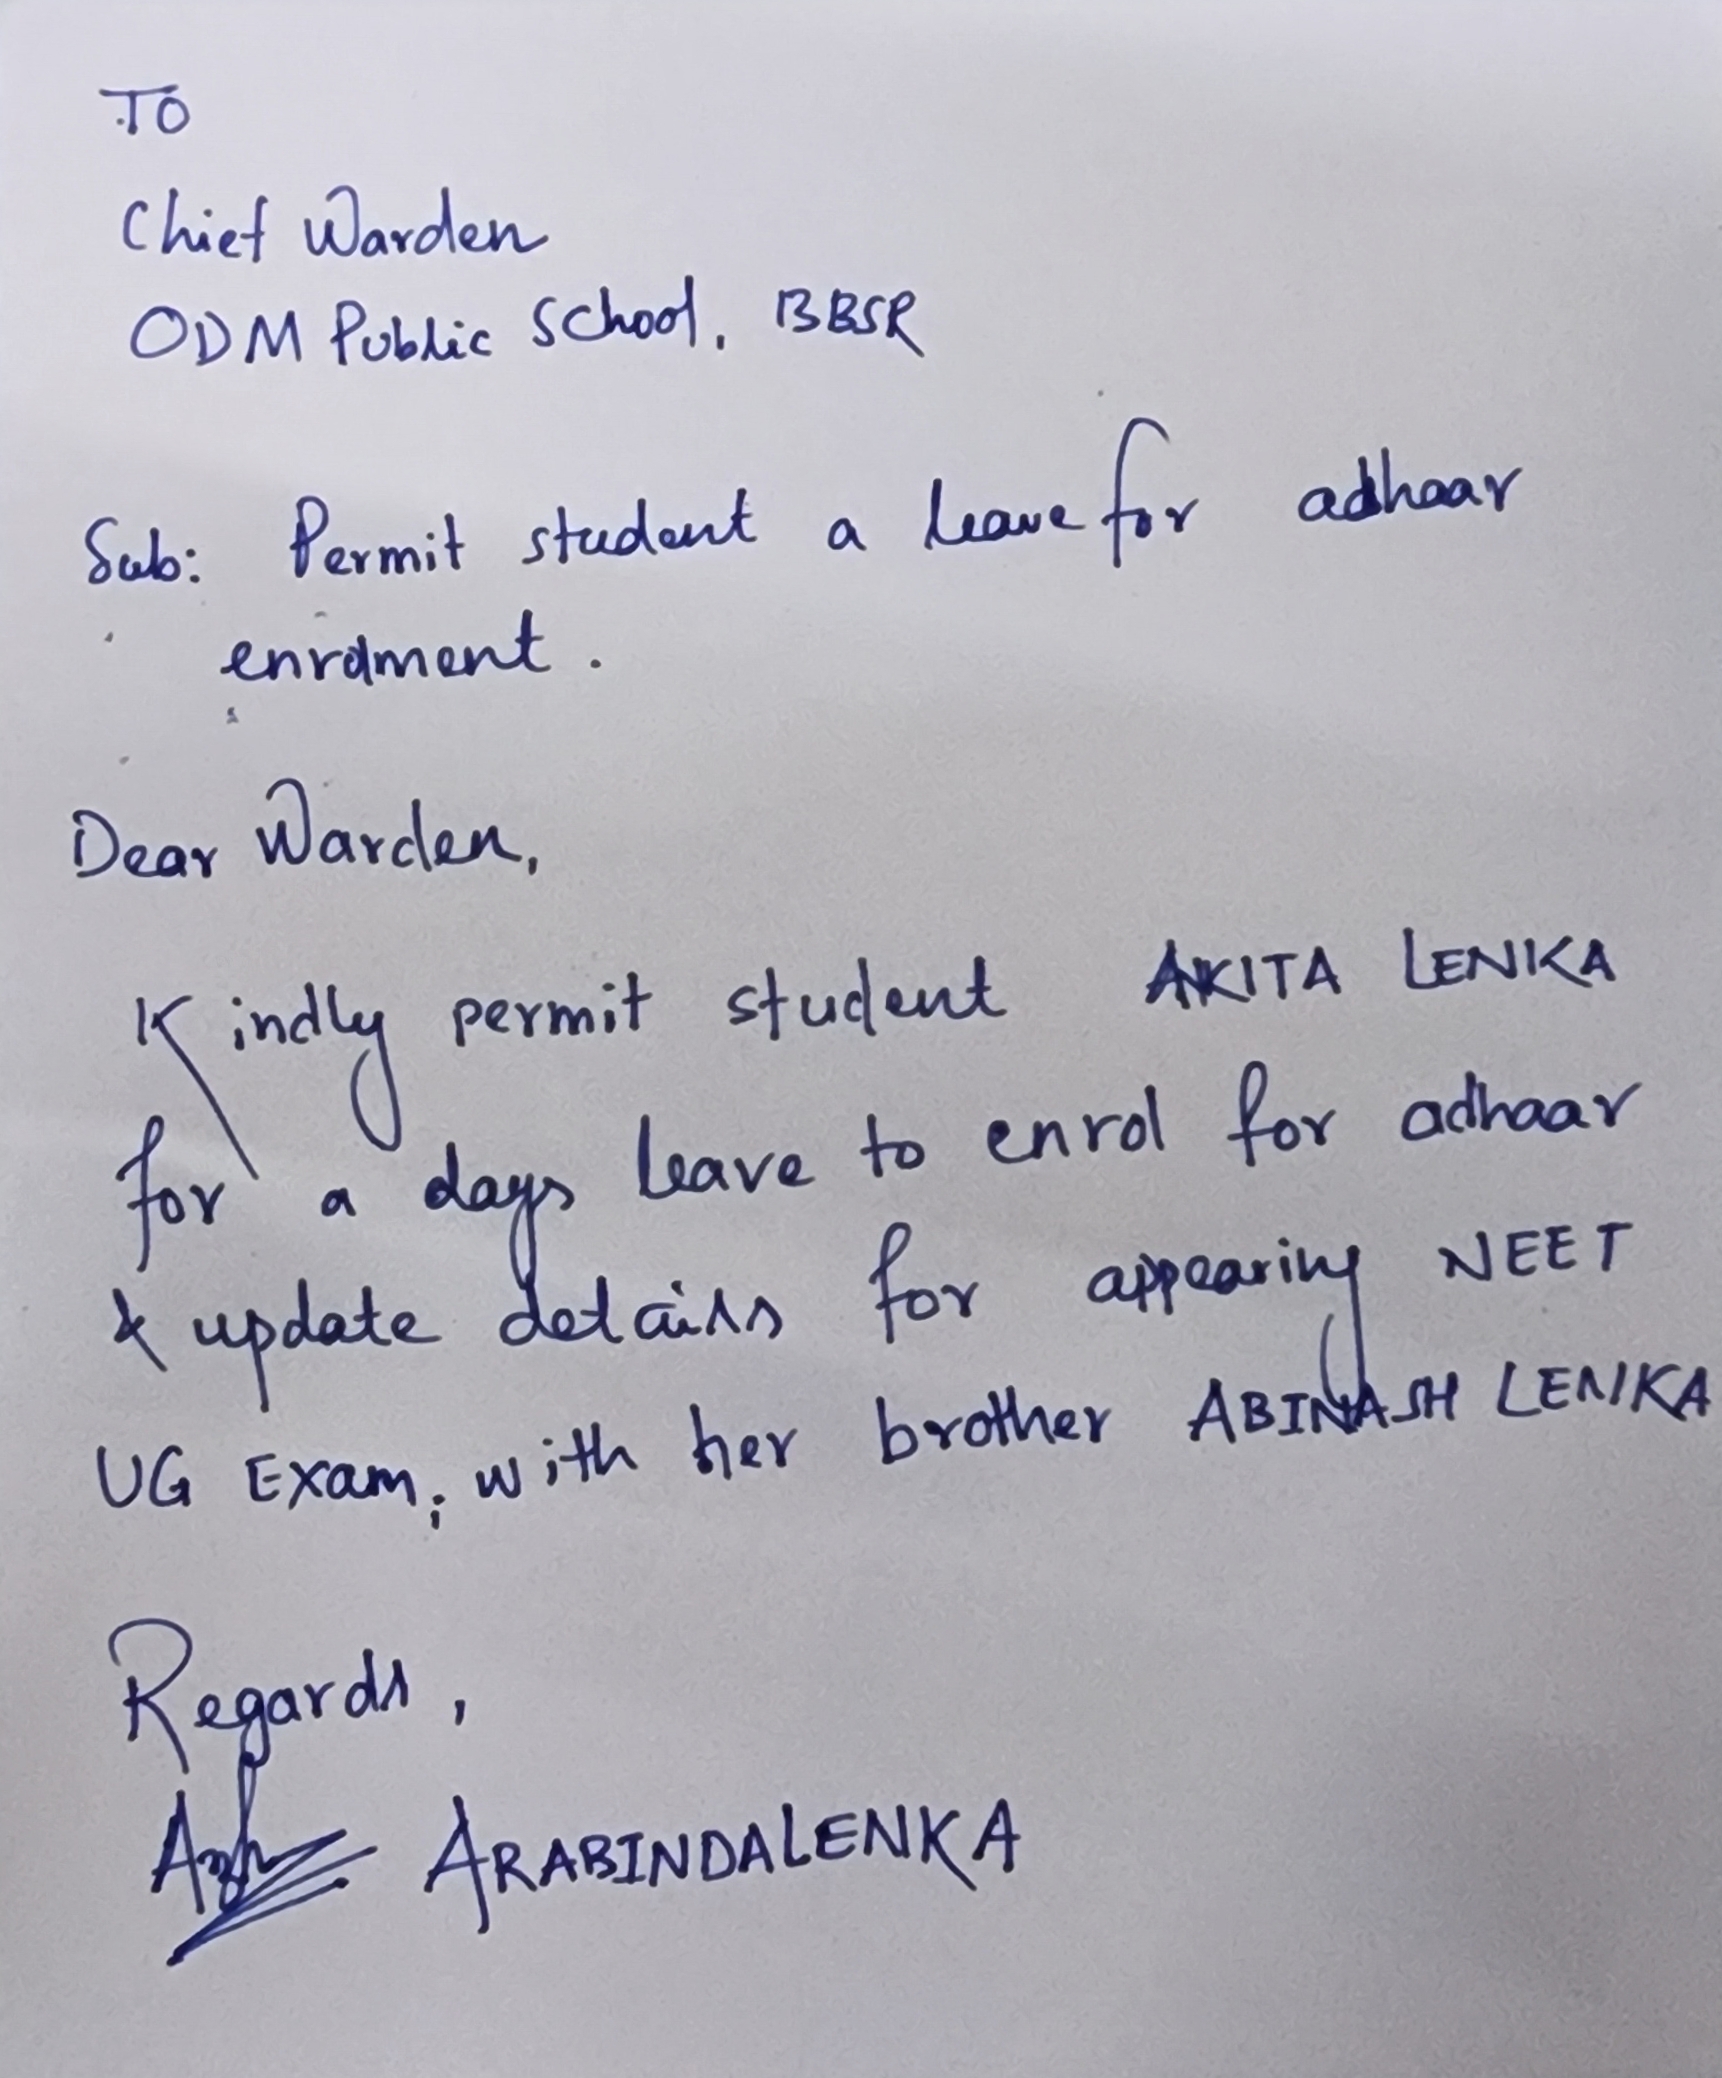 TO
Chief Warden
ODM Public School, BBSR
Sub: Permit student a leave for adhaar
enrolment.
Dear Warden,
Kindly permit student AKITA LENKA
for a days leave to enrol for adhaar
& update details for appearing NEET
UG Exam, with her brother ABINASH LENKA
Regards,
ARABINDA LENKA